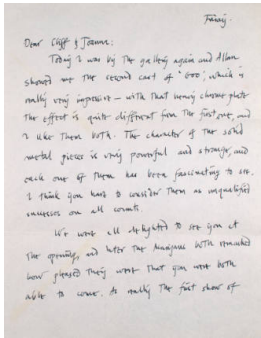 Friday.
Dear Cliff & Joanna:
Today I was by the gallery again and Allan
showed me the second cast of 'Goo', which is
really very impressive — with that heavy chrome plate
the effect is quite different from the first one, and
I like them both. The character of the solid
metal pieces is very powerful and strange, and
each one of them has been fascinating to see.
I think you have to consider them as unqualified
successes on all counts.
We were all delighted to see you at
the opening, and later the both remarked
how pleased they were that you were both
able to come. As really the first show of